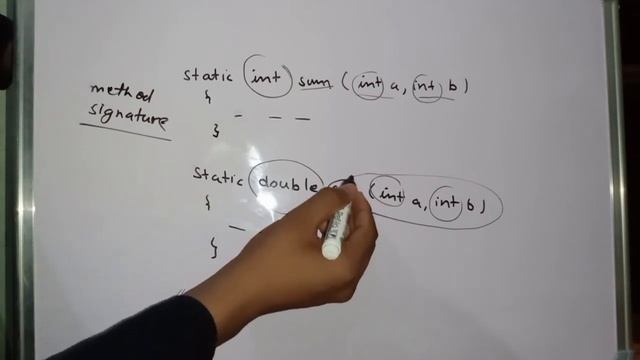 method
signature
static int sum (int a, int b)
{
— — —
}
static double (int a, int b)
{
—
}